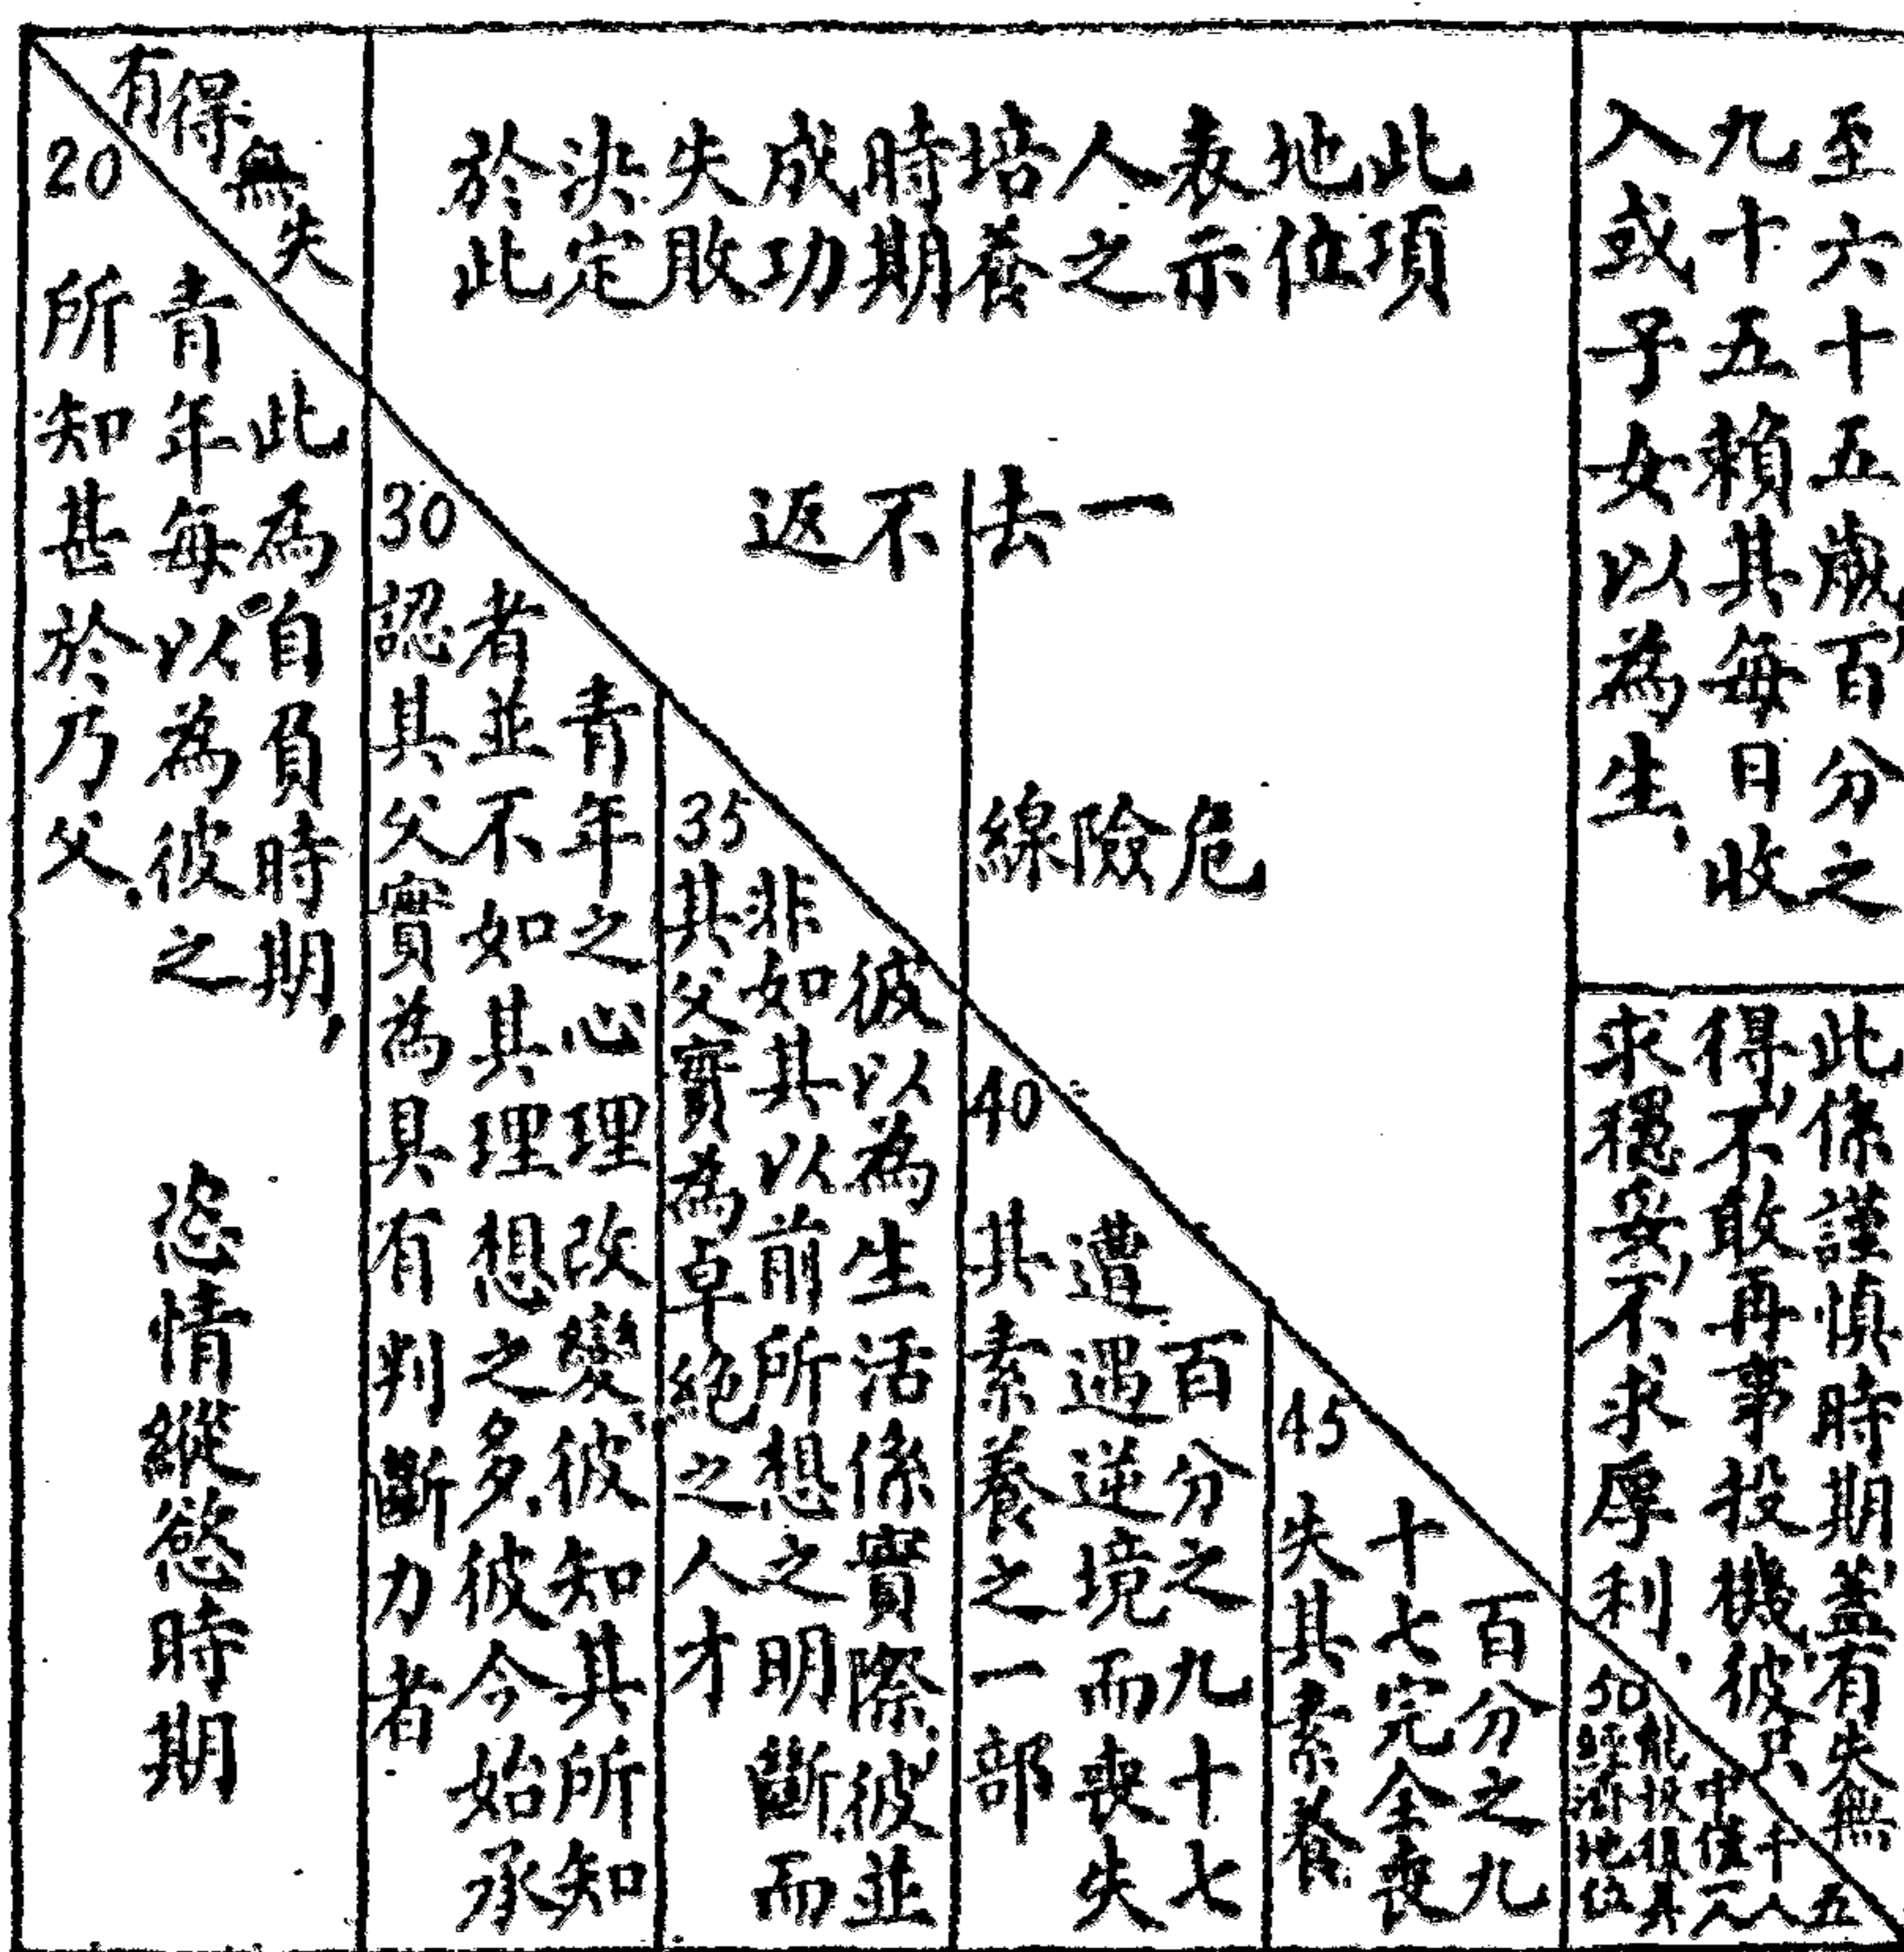 有得無失
20
此為自負時期,
青年每以為彼之
所知甚於乃父.
恣情縱慾時期
此項
地位
表示
人之
培養
時期
成功
失敗
決定
於此
一去不返
危險線
30
青年之心理改變,彼知其所知
者並不如其理想之多,彼今始承
認其父實為具有判斷力者
35
彼以為生活係實際,彼並
非如其以前所想之明斷而
其父實為卓絕之人才
40
百分之九十七
遭遇逆境而喪失
其素養之一部
45
百分之九
十七完全喪
失其素養
至六十五歲,百分之
九十五賴其每日收
入或子女以為生,
此係謹慎時期,蓋有失無
得,不敢再事投機,彼只
求穩妥,不求厚利.
50
五
千人
中僅一人
能恢復其
經濟地位